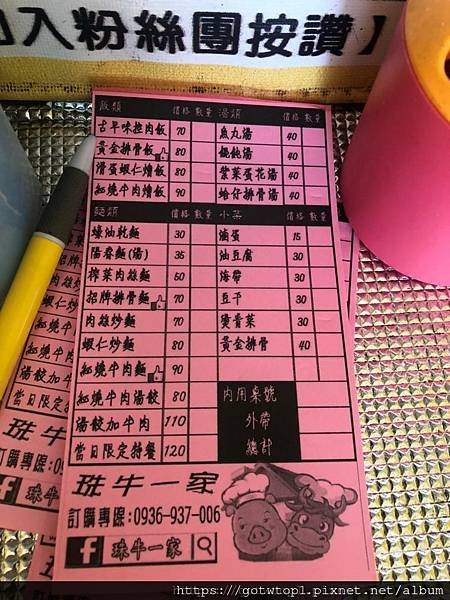 入粉絲團按讚】
飯類 價格 數量 湯類 價格 數量
古早味控肉飯 70 魚丸湯 40
黃金排骨飯 80 餛飩湯 40
滑蛋蝦仁燴飯 80 紫菜蛋花湯 40
紅燒牛肉燴飯 90 蛤仔排骨湯 40
麵類 價格 數量 小菜 價格 數量
蠔油乾麵 30 滷蛋 15
陽春麵(湯) 35 油豆腐 30
榨菜肉絲麵 50 海帶 30
招牌排骨麵 70 豆干 30
肉絲炒麵 70 燙青菜 30
蝦仁炒麵 80 黃金排骨 40
紅燒牛肉麵 90
紅燒牛肉湯餃 80 內用桌號
湯餃加牛肉 110 外帶
當日限定特餐 120 總計
珄牛一家
訂購專線:0936-937-006
f 珄牛一家
https://gotwtop1.pixnet.net/album